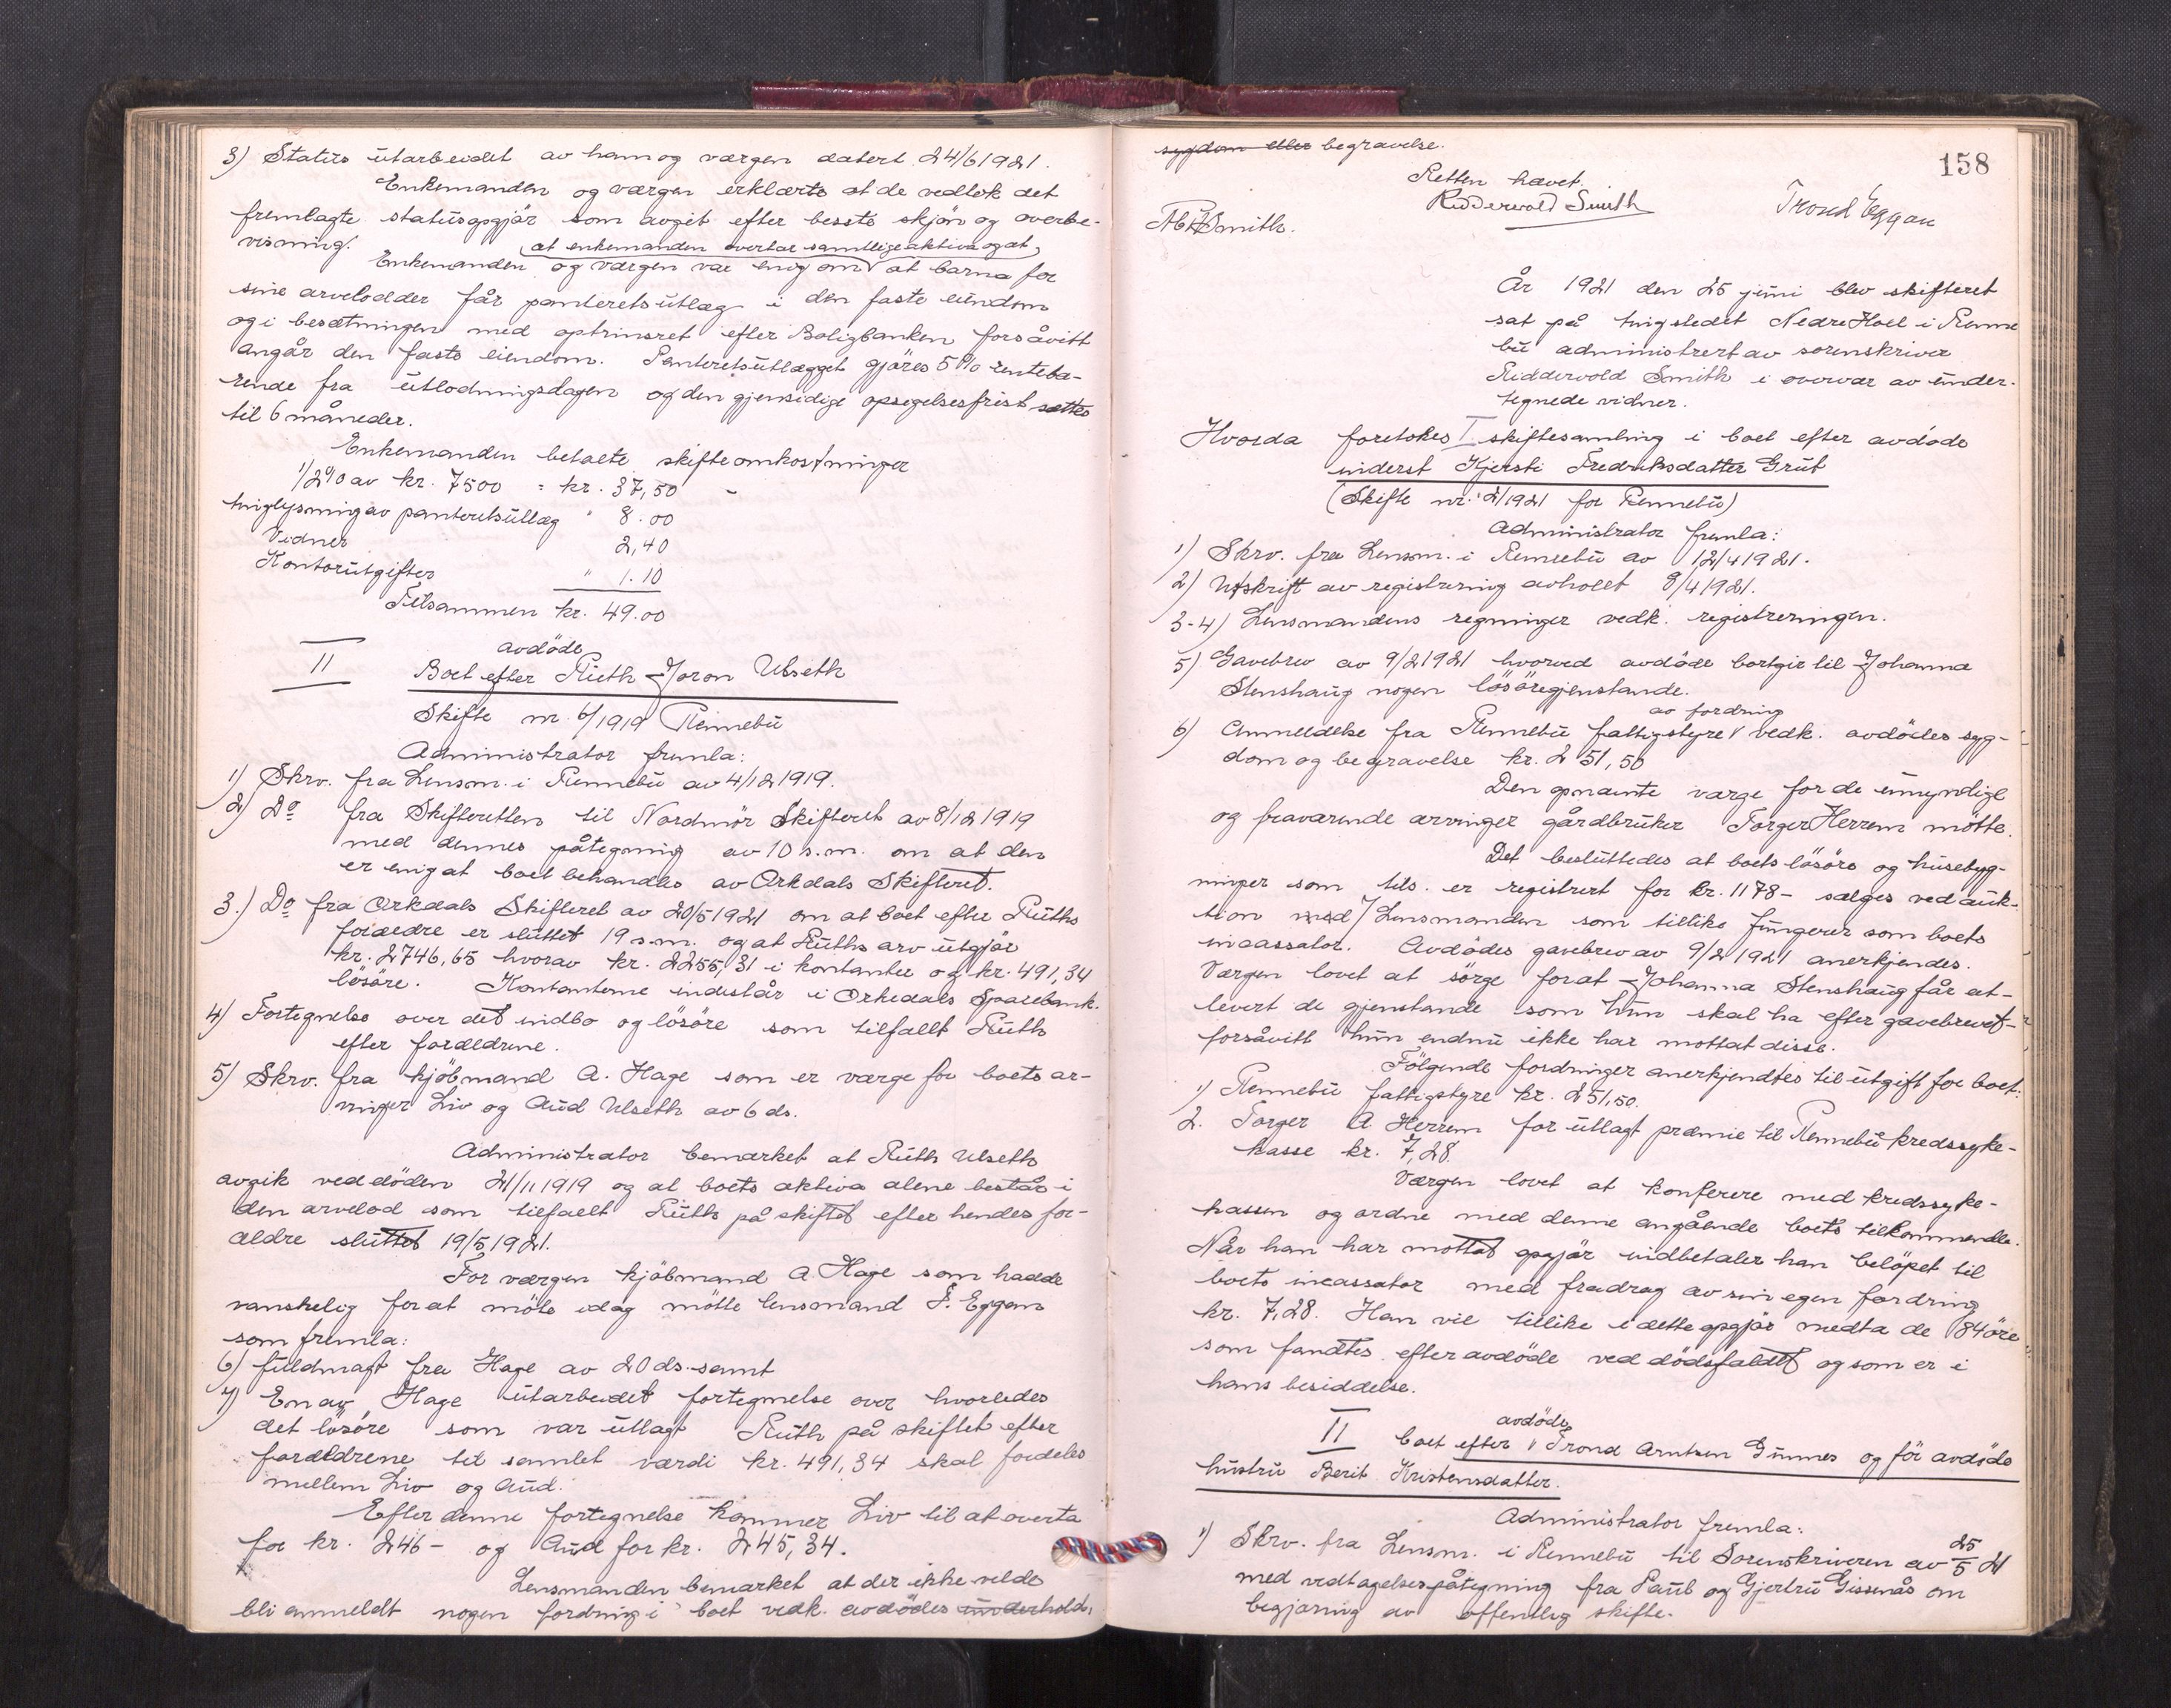 3) Status utarbeidet av ham og værgen datert 24/6 1921.
Enkemanden og værgen erklærte at de vedtok det
fremlagte statusopgjör som avgit efter beste skjön og overbe-
visning.
at enkemanden overtar samtlige aktiva og at
Enkemanden og værgen var enig om at barna for
sine arvelodder får panteretsutlæg i den faste eiendom
og i besætningen med optrinsret efter Boligbanken forsåvitt
angår den faste eiendom. Panteretsutlægget gjöres 5% renteba-
rende fra utlodningsdagen og den gjensidige opsigelsesfrist sættes
til 6 måneder.
Enkemanden betalte skifteomkostninger
1/2% av kr. 7500 = kr. 37,50
tinglysning av panteretsutlæg " 8.00
Vidner 2,40
Kontorutgifter " 1.10
Tilsammen kr. 49.00
II avdöde
Boet efter Ruth Joron Ulseth
Skifte nr. 6/1919 Rennebu
Administrator fremla:
1) Skrv. fra Lensm. i Rennebu av 4/12 1919.
2) Do fra Skifteretten til Nordmör Skifteret av 8/12 1919
med dennes påtegning av 10 s.m. om at den
er enig at boet behandles av Orkdals Skifteret.
3.) Do fra Orkdals Skifteret av 20/5 1921 om at boet efter Ruths
forældre er sluttet 19 s.m. og at Ruths arv utgjör
kr. 2746,65 hvorav kr. 2255,31 i kontanter og kr. 491,34
lösöre. Kontanterne indestår i Orkedals Sparebank.
4) Fortegnelse over det indbo og lösöre som tilfallt Ruth
efter forældrene.
5) Skrv. fra kjöbmand A. Hage som er værge for boets ar-
vinger Liv og Aud Ulseth av 6 ds.
Administrator bemærket at Ruth Ulseth
avgik ved döden 21/11 1919 og at boets aktiva alene består i
den arvelod som tilfallt Ruth på skiftet efter hendes for-
ældre sluttet 19/5 1921.
For værgen kjöbmand A Hage som hadde
vanskelig for at möte idag mötte lensmand T. Eggan
som fremla:
6) fuldmagt fra Hage av 20 ds. samt
7) En av Hage utarbeidet fortegnelse over hvorledes
det lösöre som var utlagt Ruth på skiftet efter
forældrene til samlet værdi kr. 491,34 skal fordeles
mellem Liv og Aud.
Efter denne fortegnelse kommer Liv til at overta
for kr. 246- og Aud for kr. 245,34.
Lensmanden bemærket at der ikke vilde
bli anmeldt nogen fordring i boet vedk. avdödes underhold,
158
sygdom eller begravelse.
Retten hævet.
Ridderwold Smith
Trond Eggan
Smith.
År 1921 den 25 juni blev skifteret
sat på tingstedet Nedre Hoel i Renne
bu administrert av sorenskriver
Riddervold Smith i overvær av under-
tegnede vidner.
Hvorda foretokes I skiftesamling i boet efter avdöde
inderst Kjersti Fredriksdatter Grut
(Skifte nr. 2/1921 for Rennebu)
Administrator fremla:
1) Skrv. fra Lensm. i Rennebu av 12/4 1921.
2) Utskrift av registrering avholdt 8/4 1921.
3-4) Lensmandens regninger vedk. registreringen.
5) Gavebrev av 9/2 1921 hvorved avdöde bortgir til Johanna
Stenshaug nogen lösöregjenstande.
av fordring
6) Anmeldelse fra Rennebu fattigstyre vedk. avdödes syg-
dom og begravelse kr. 251,50
Den opnævnte værge for de umyndige
og fraværende arvinger gårdbruker Torger Herrem mötte.
Det besluttedes at boets lösöre og husebyg-
ninger som tils. er registrert for kr. 1178- sælges ved auk-
tion ved Lensmanden som tillike fungerer som boets
incassator. Avdödes gavebrev av 9/2 1921 anerkjendes.
Værgen lovet at sörge for at Johanna Stenshaug får at-
levert de gjenstande som hun skal ha efter gavebrevet
forsåvitt hun endnu ikke har mottat disse.
Fölgende fordringer anerkjendtes til utgift for boet:
1) Rennebu fattigstyre kr. 251,50.
2. Torger A Herrem for utlagt præmie til Rennebu kredssyke-
kasse kr. 7,28.
Værgen lovet at konferere med kredssyke-
kassen og ordne med denne angående boets tilkommende.
Når han har mottat opgjör indbetaler han belöpet til
boets incassator med fradrag av sin egen fordring
kr. 7,28. Han vil tillike i dette opgjör medta de 84 öre
som fandtes efter avdöde ved dödsfaldet og som er i
hans besiddelse.
II avdöde
boet efter Trond Arntsen Gunnes og för avdöde
hustru Berit Kristensdatter.
Administrator fremla:
1) Skrv. fra Lensm. i Rennebu til Sorenskriveren av 25/5 21
med vedtagelsespåtegning fra Paul og Gjertru Gissnås om
begjæring av offentlig skifte.